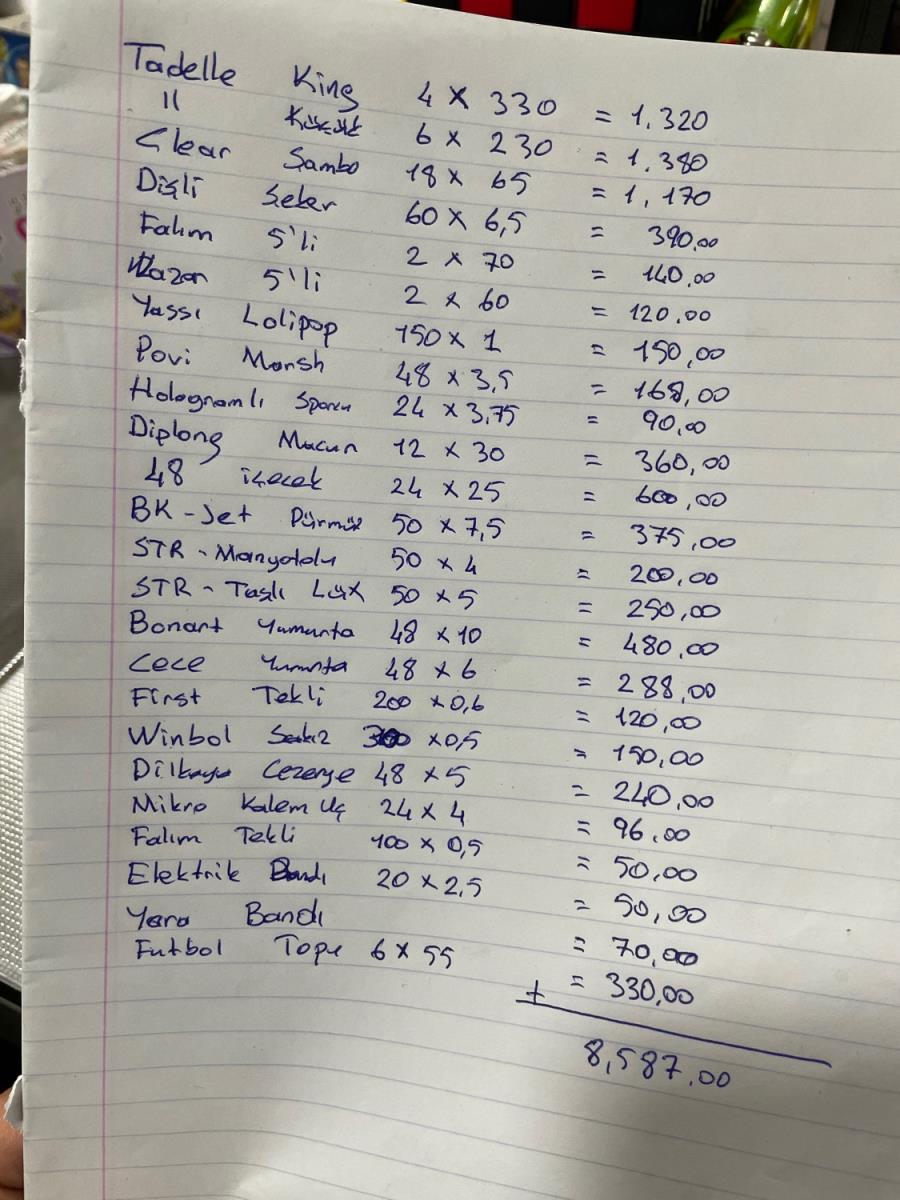 Tadelle King 4 x 330 = 1.320
" Küçük 6 x 230 = 1.380
Clear Şambo 18 x 65 = 1,170
Dişli Şeker 60 x 6,5 = 390,00
Falım 5'li 2 x 70 = 140,00
5'li 2 x 60 = 120.00
Yassı Lolipop 150 x 1 = 150,00
Povi Marsh 48 x 3,5 = 168,00
Hologramlı 24 x 3,75 = 90,00
Diplong Macun 12 x 30 = 360,00
48 içecek 24 x 25 = 600,00
BK-Jet Pürmüz 50 x 7,5 = 375,00
STR-Manyotolu 50 x 4 = 200,00
STR-Taşlı Lüx 50 x 5 = 250,00
Bonart Yumurta 48 x 10 = 480,00
Cece Yumurta 48 x 6 = 288,00
First Tekli 200 x 0,6 = 120,00
Winbol Sakız 300 x 0,5 = 150,00
Dilkaya Cezerye 48 x 5 = 240,00
Mikro Kalem Uç 24 x 4 = 96.00
Falım Tekli 100 x 0,5 = 50,00
Elektrik Bandı 20 x 2,5 = 50,00
Yara Bandı = 70,00
Futbol Topu 6 x 55 = 330,00
+
8,587.00